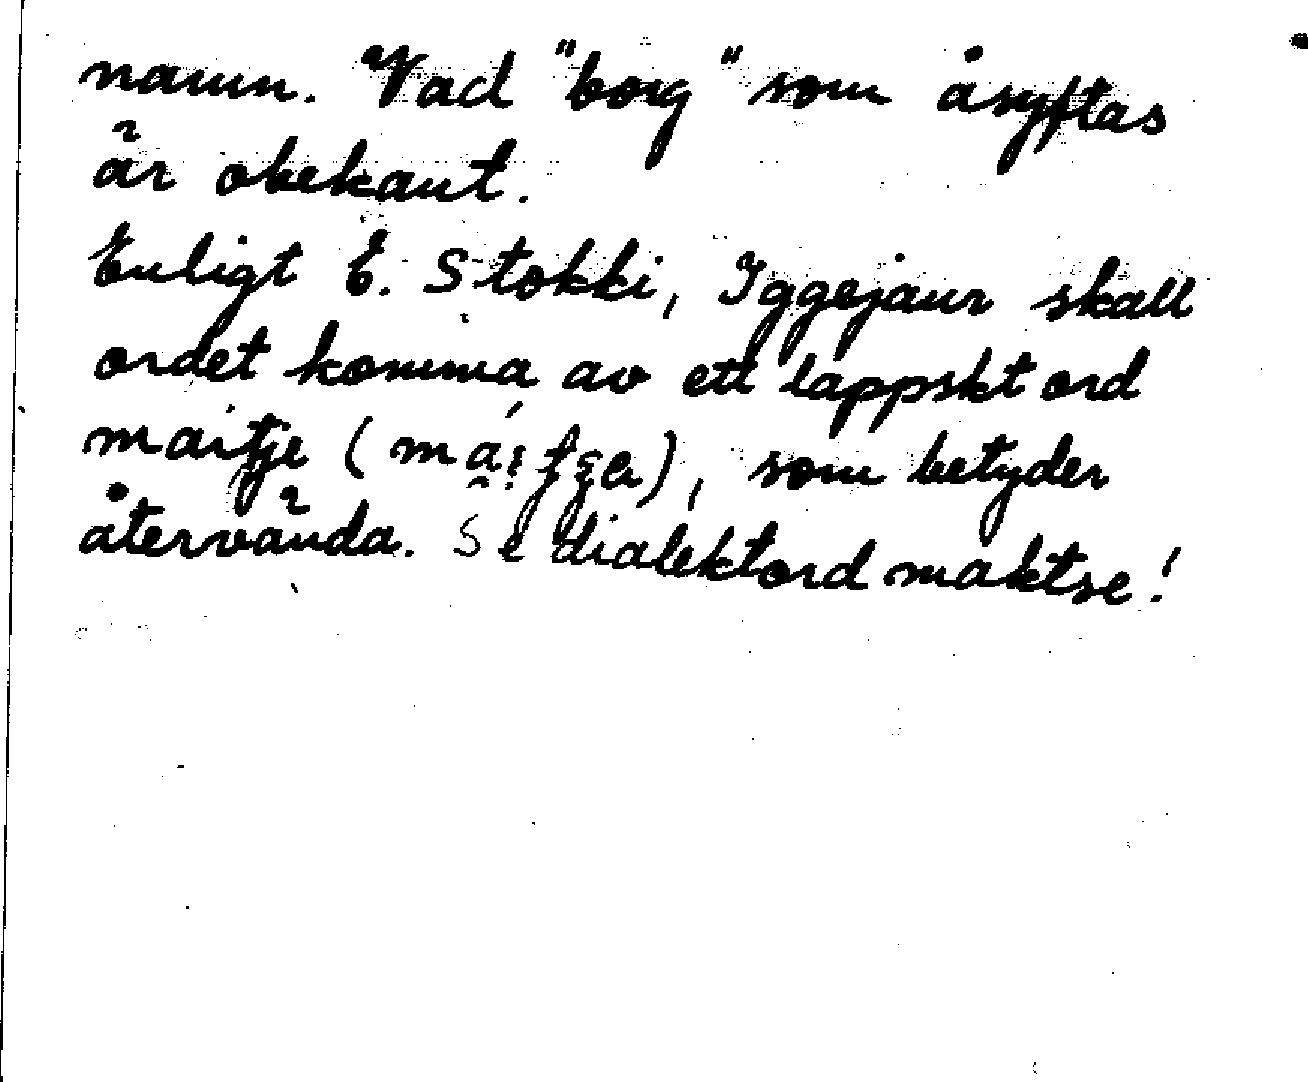 namn. Vad "borg" som åsyftas
är obekant.
Enligt E. Stokki, Iggejaur skall
ordet komma av ett lappskt ord
maitje (         ), som betyder
återvända. Se dialektord maktse!